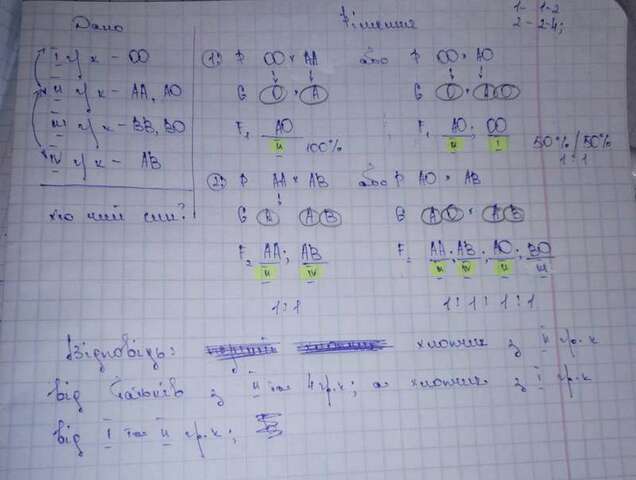 Дано
Рішення
1- 1-2
2- 2-4;
I гр к - OO
II гр к - AA, AO
III гр к - BB, BO
IV гр к - AB
хто чий син?
1) P OO × AA або P OO × AO
G O × A G O × A O
F₁ AO 100% ; F₁ AO ; OO 50% / 50%
II II I 1:1
2) P AA × AB або P AO × AB
G A A B G A O × A B
F₂ AA ; AB F₂ AA ; AB ; AO ; BO
II IV II IV II III
1:1 1:1:1:1
Відповідь: хлопчик з II гр. к
від батьків з II та 4 гр. к; а хлопчик з I гр. к
від I та II гр. к;